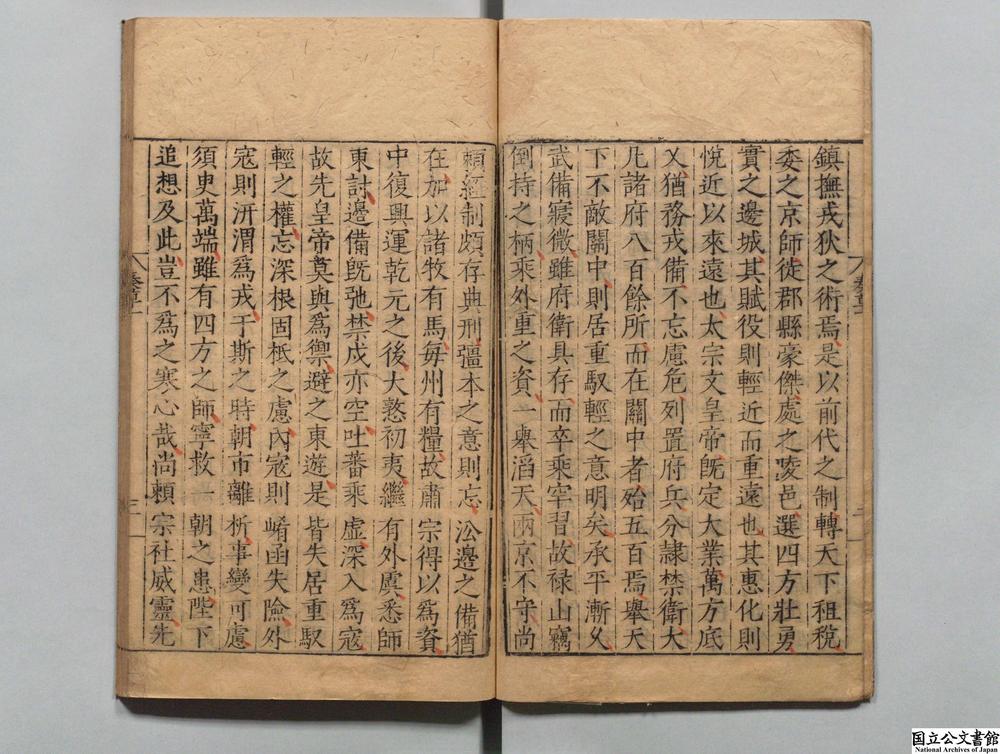 鎮撫戎狄之術焉是以前代之制轉天下租稅
委之京師徙郡縣豪傑處之陵邑選四方壯勇
實之邊城其賦役則輕近而重遠也其惠化則
悅近以來遠也太宗文皇帝旣定大業萬方底
乂猶務戎備不忘慮危列置府兵分隷禁衛大
凡諸府八百餘所而在關中者殆五百焉舉天
下不敵關中則居重馭輕之意明矣承平漸久
武備寢微雖府衛具存而卒乘罕習故祿山竊
倒持之柄乘外重之資一舉滔天兩京不守尚
賴經制頗存典刑彊本之意則忘㳂邊之備猶
在加以諸牧有馬每州有糧故肅宗得以為資
中復興運乾元之後大憝初夷繼有外虞悉師
東討邊備旣弛禁戍亦空吐蕃乘虛深入為寇
故先皇帝莫與為禦避之東遊是皆失居重馭
輕之權忘深根固柢之慮內寇則崤函失險外
寇則汧渭為戎于斯之時朝市離析事變可慮
須臾萬端雖有四方之師寧救一朝之患陛下
追想及此豈不為之寒心哉尚賴宗社威靈先
奏草一
二
奏草一
三
国立公文書館
National Archives of Japan